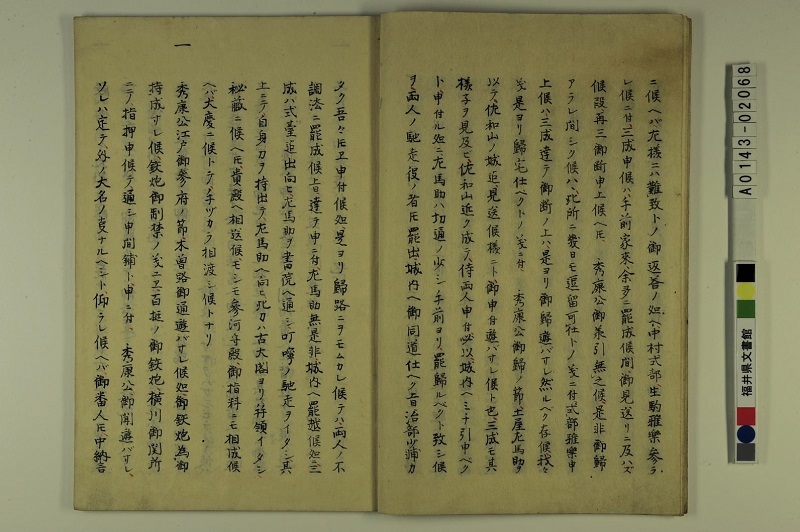 ニ候ヘバ左様ニハ難致トノ御返答ノ処ヘ中村式部生駒雅樂参ラ
レ候ニ付三成申候ハ手前家来余多ニ罷成候間御見送リニ及ハズ
候段再三御断申上候ヘ𪜈　秀康公御承引無之候是非御帰
アラレ間シク候ハヽ此所ニ幾日モ逗留可仕トノ義ニ付式部雅樂申
上候ハ三成達テ御断ノ上ハ是ヨリ御帰遊バサレ然ルベク存候我々
義是ヨリ歸宅仕ベクトノ義ニ付　秀康公御帰ノ節土屋左馬助ヲ
以テ佐和山ノ城迄見送候様ニト御申付遊バサレ候ト也三成モ其
様子ヲ見及ビ佐和山近ク成テ侍両人申付必以城内ヘミチ引申ベク
ト申付ル処ニ左馬助ハ切通ノ
手前ヨリ罷歸ルベクト致シ候
ヲ両人ノ馳走役ノ者𪜈罷出城内ヘ御同道仕ベク旨治部少輔カ
タク吾々𪜈エ申付候処是ヨリ歸路ニヲモムカレ候テハ両人ノ不
調法ニ罷成候旨達テ申ニ付左馬助無是非城内ヘ罷越候処三
成ハ式臺迄出向ヒ左馬助ヲ書院ヘ通シ叮嚀ノ馳走ヲイタシ其
上ニテ自身刀ヲ持出テ左馬助ヘ向ヒ此刀ハ古太閤ヨリ拝領イタシ
秘蔵ニ候ヘ𪜈貴殿ヘ相送候モシモ参河守殿御指料ニモ相成候
ヘバ大慶ニ候トテ手ヅカラ相渡シ候トナリ
一
秀康公江戸御参府ノ節木曽路御通遊バサレ候処御鉄炮為御
持成サレ候鉄炮御制禁ノ義ニ
百挺ノ御鉄炮横川御関所
ニテ指押申候テ通シ申間鋪ト申ニ付　秀康公御聞遊バサレ
ソレハ定テ外ノ大名ノ事ナルベシト仰ラレ候ヘバ御番人𪜈中納言
A0143-02068
福井県文書館